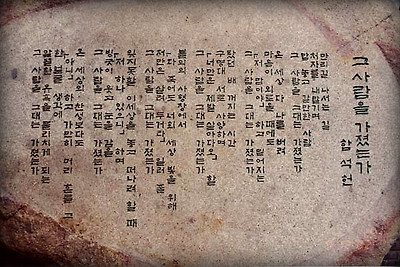 그 사람을 가졌는가
함 석 헌
만리길 나서는 길
처자를 내맡기며
맘 놓고 갈만한 사람
그 사람을 그대는 가졌는가
온 세상 다 나를 버려
마음이 외로울 때에도
「저 맘이야」 하고 믿어지는
그 사람을 그대는 가졌는가
탔던 배 꺼지는 시간
구명대 서로 사양하며
「너만은 제발 살아다오」 할
그 사람을 그대는 가졌는가
불의의 사형장에서
「다 죽여도 너의 세상 빛을 위해
저만은 살려 두거라」 일러 줄
그 사람을 그대는 가졌는가
잊지못할 이 세상을 놓고 떠나려 할 때
「저 하나 있으니」 하며
빙긋이 웃고 눈을 감을
그 사람을 그대는 가졌는가
온 세상의 찬성보다도
「아니」 하고 가만히 머리 흔들 그
한 얼굴 생각에
알뜰한 유혹을 물리치게 되는
그 사람을 그대는 가졌는가